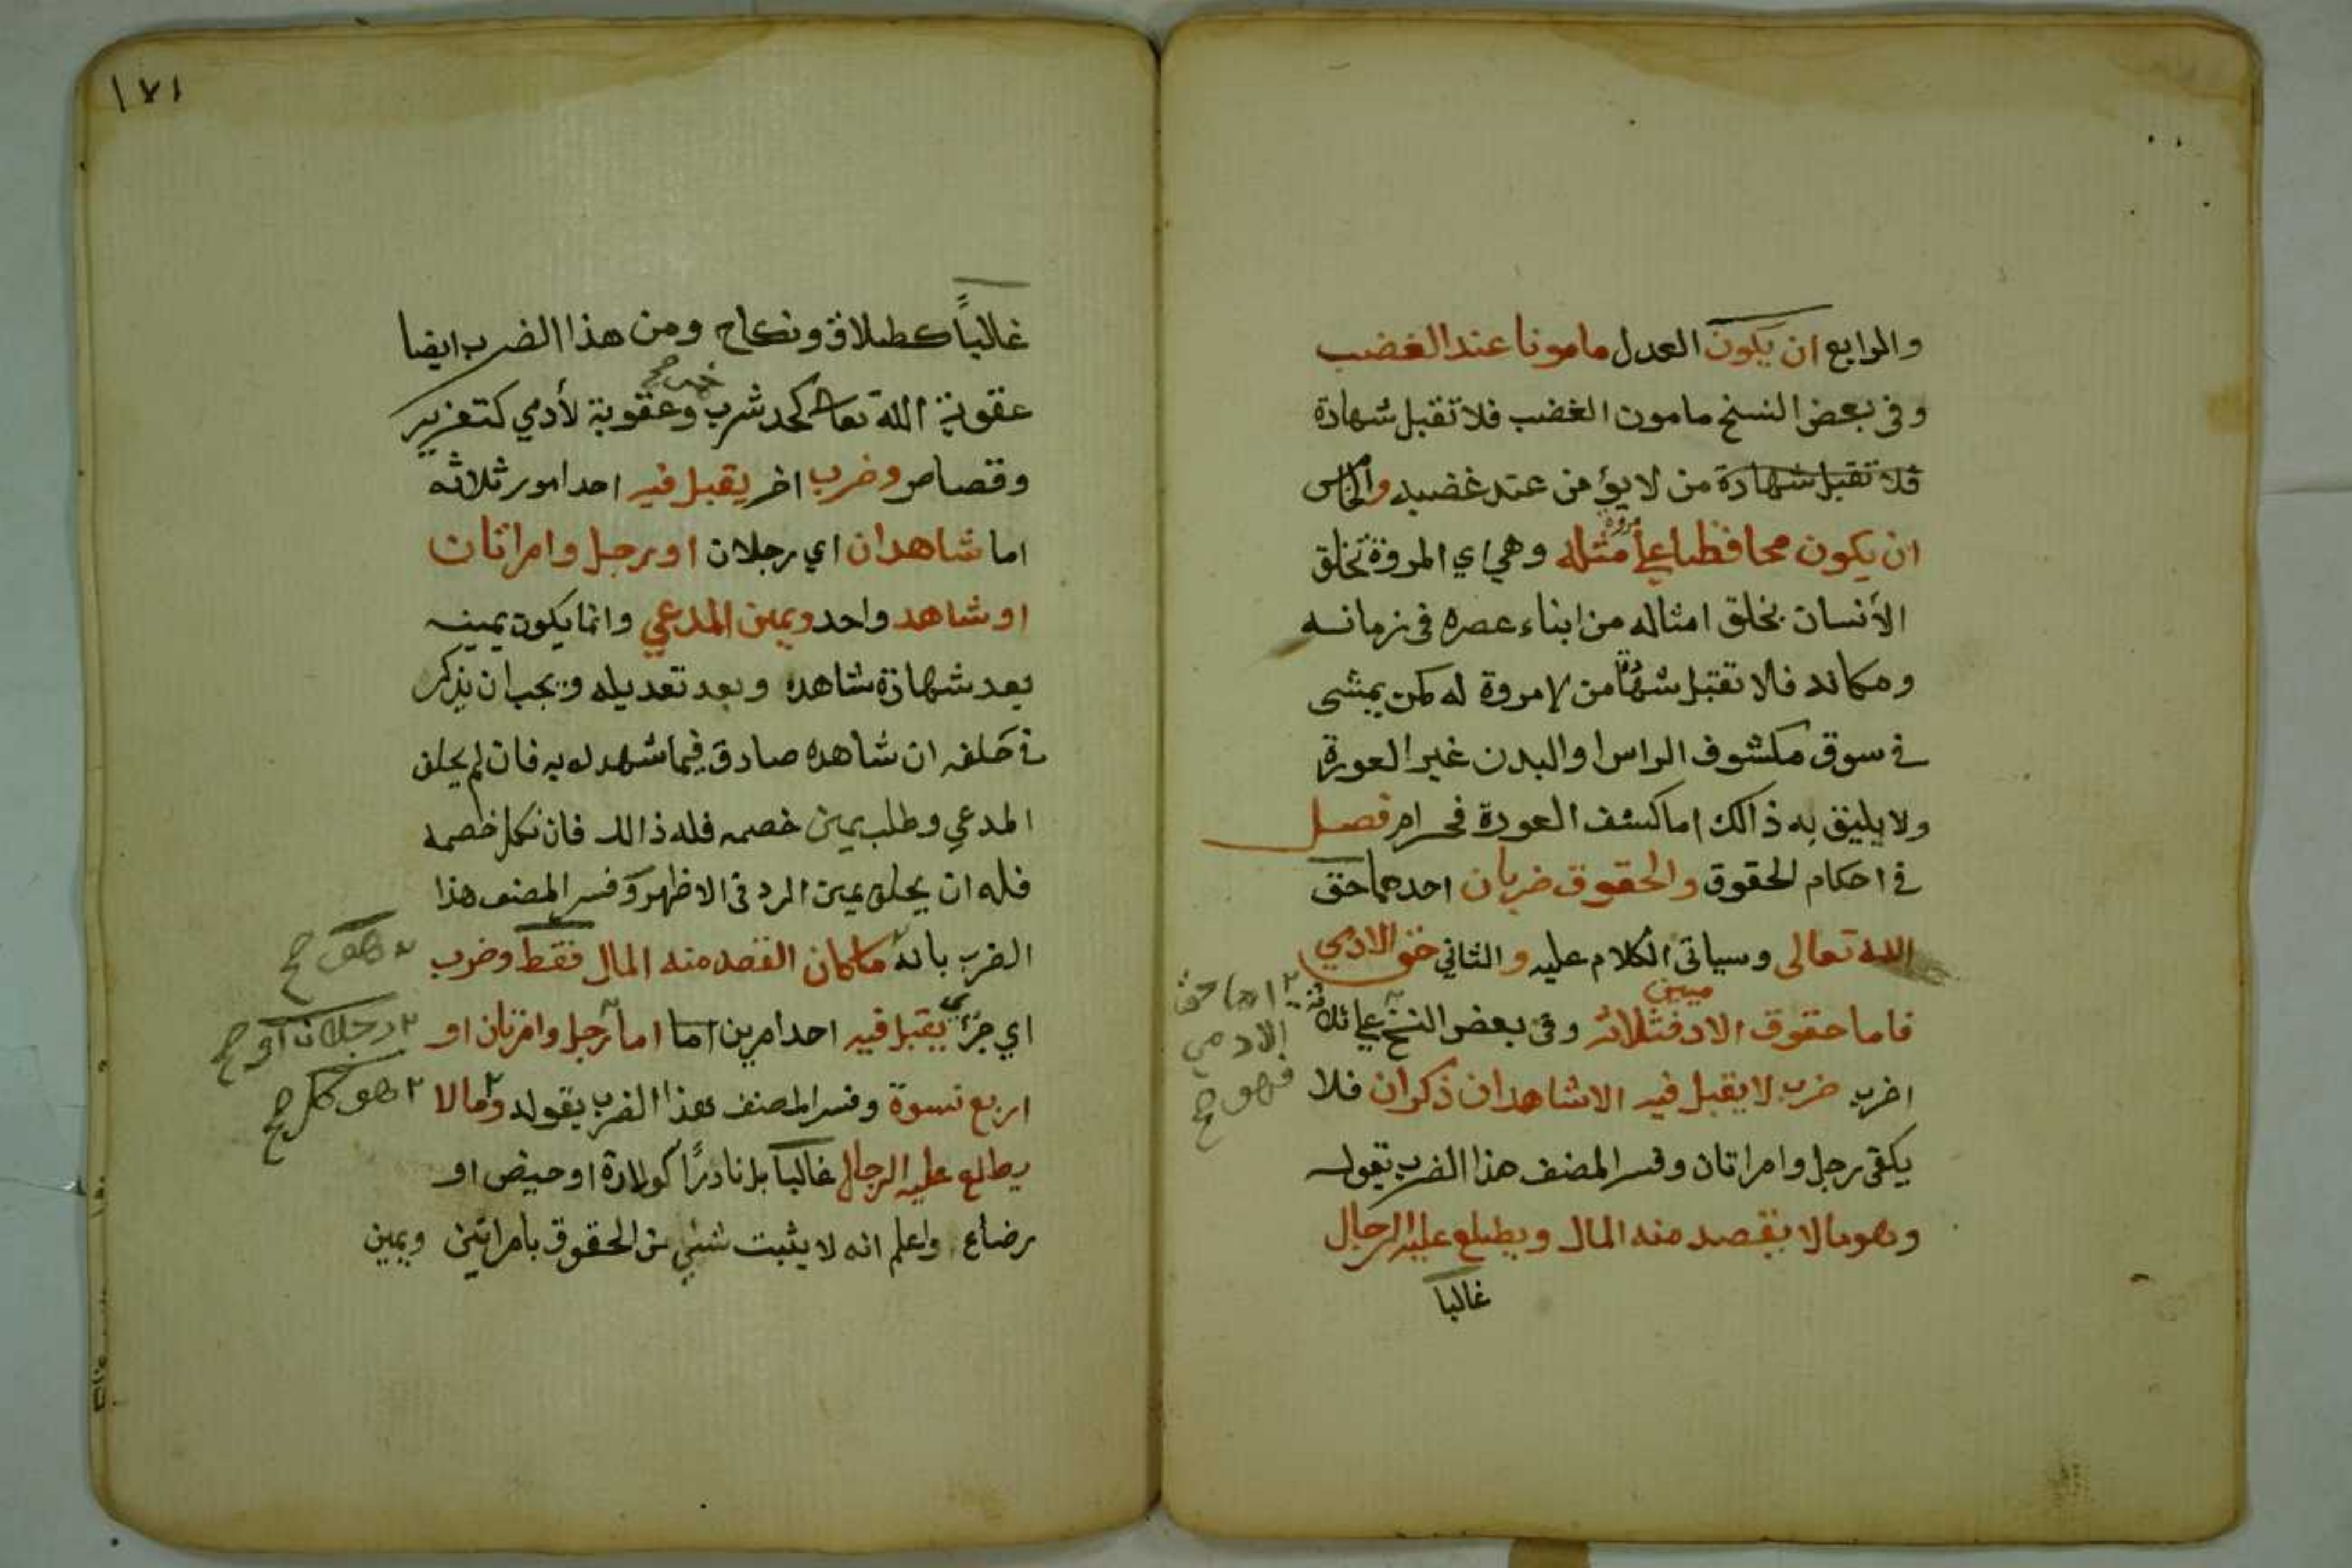 والرابع ان يكون العدل مامونا عند الغضب
وفي بعض النسخ مامون الغضب فلا تقبل شهادة
فلا تقبل شهادة من لا يؤمن عند غضبه والخامس
ان يكون محافظا على مروة مثله وهي اي المروة تخلق
الأنسان بخلق امثاله من ابناء عصره في زمانه
ومكانه فلا تقبل شهادة من لا مروة له كمن يمشى
في سوق مكشوف الراس والبدن غير العورة
ولا يليق به ذالك اما كشف العورة فحرام فصل
في احكام الحقوق والحقوق ضربان احدهما حق
الله تعالى وسياتي الكلام عليه والثاني حق الادمي
فاما حقوق الادميين فثلاثة وفي بعض النسخ على ثلاثة
اما حق
الادمي
فهو صح
اضرب ضرب لا يقبل فيه الا شاهدان ذكران فلا
يكفى رجل وامراتان وفسر المصنف هذا الضرب بقوله
وهو مالا يقصد منه المال ويطلع عليه الرجال
غالبا
١٧١
غالباً كطلاق ونكاح ومن هذا الضرب ايضا
عقوبة الله تعالى كحد شرب خمر صح وعقوبة لأدمي كتعزير
وقصاص وضرب اخر يقبل فيه احد امور ثلاثه
اما شاهدان اي رجلان او رجل وامراتان
او شاهد واحد ويمين المدعي وانما يكون يمينه
بعد شهادة شاهده وبعد تعديله ويجب ان يذكر
في حلفه ان شاهده صادق فيما شهد له به فان لم يحلف
المدعي وطلب يمين خصمه فله ذالك فان نكل خصمه
فله ان يحلف يمين الرد في الاظهر وفسر المصنف هذا
الضرب بانه ما كان القصد منه المال فقط وضرب
هو صح
اي جزئي يقبل فيه احد امرين اما اما رجل وامرتان او
رجلان او صح
اربع نسوة وفسر المصنف هذا الضرب بقوله وما لا
هو كل صح
يطلع عليه الرجال غالبا بل نادرًا كولادة او حيض او
رضاع واعلم انه لا يثبت شئي من الحقوق بامراتين ويمين